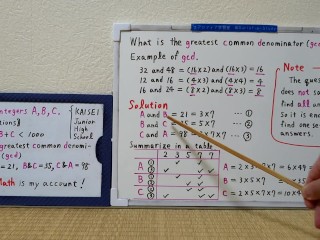 What is the greatest common denominator (gc
Example of gcd.
32 and 48 = (16×2) and (16×3) = 16
12 and 16 = (4×3) and (4×4) = 4
16 and 24 = (8×2) and (8×3) = 8
Solution
A and B = 21 = 3×7 ... ①
B and C = 35 = 5×7 ... ②
C and A = 98 = 2×7×7 ... ③
Summarize in a table
2 3 5 7 7
A ①
③
B ①
②
C ②
③
A = 2×3×7×7 = 6×49
B = 3×5×7
C = 2×5×7×7 = 10×4
Note
The que
does not
find all
So it is en
find one se
answers.
ntegers A, B, C.
tions}
B+C < 1000
greatest common denomi-
(gcd)
= 21, B&C=35, C&A = 98
Math is my account!
KAISEI
Junior
High
School